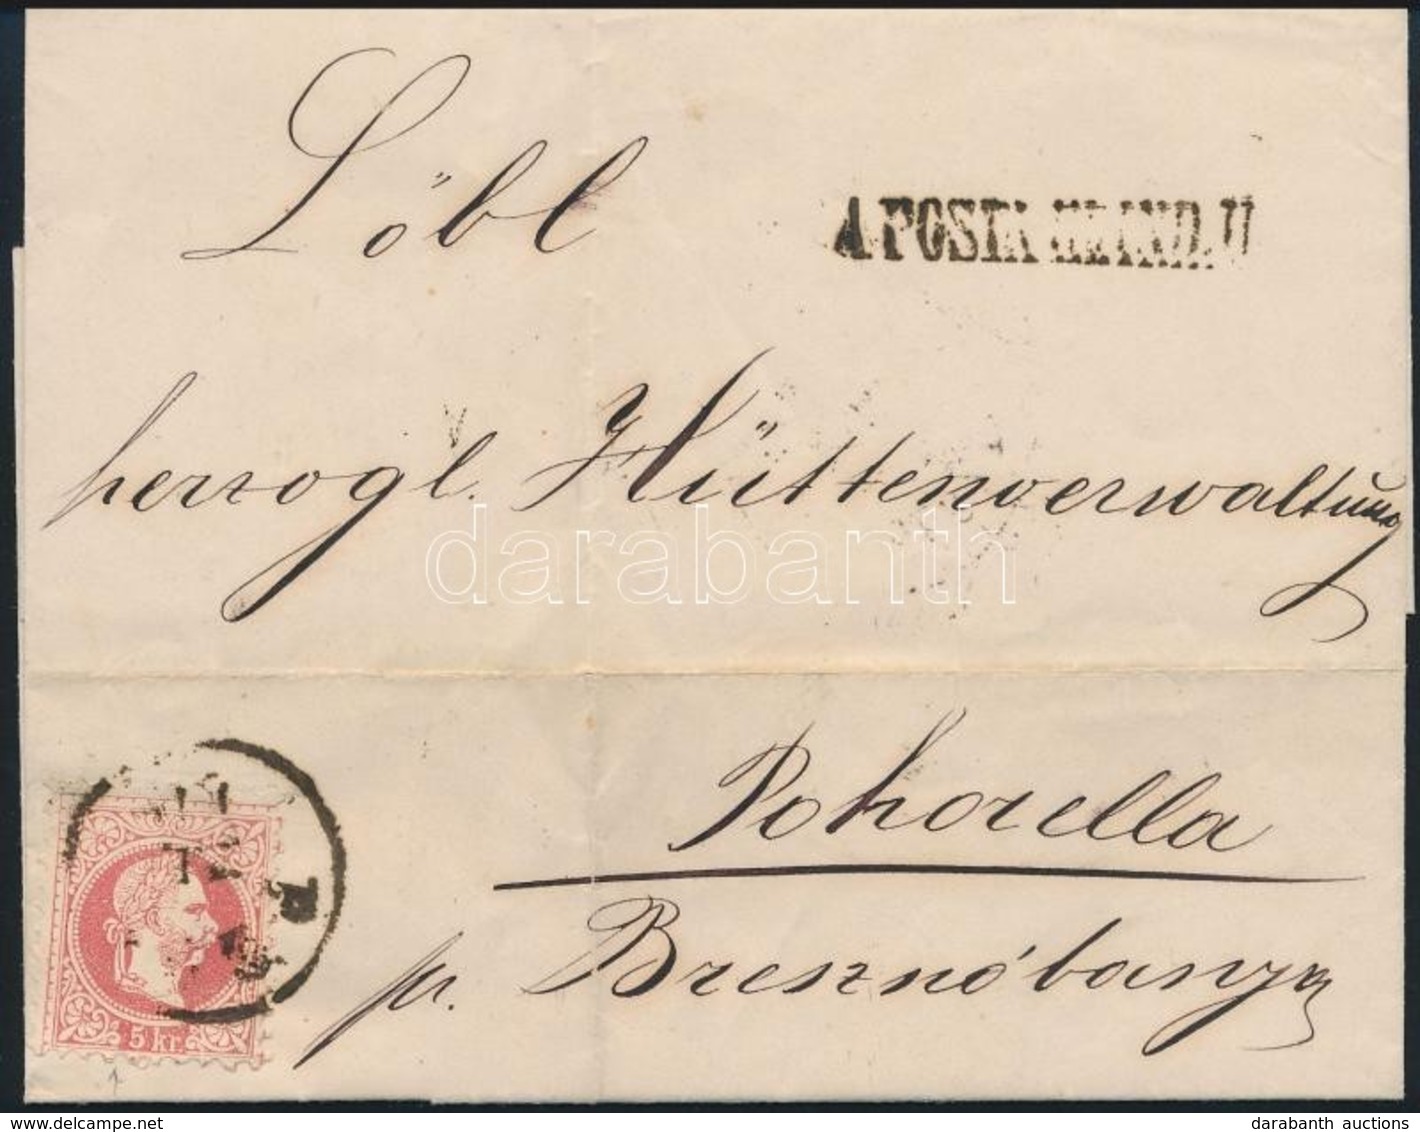 Löbl
A POSTA
herzogl. Hüttenverwaltung
darabanth
Pohorella
pr. Bresznóbanya
5 kr.
www.delcampe.net
darabanth auctions